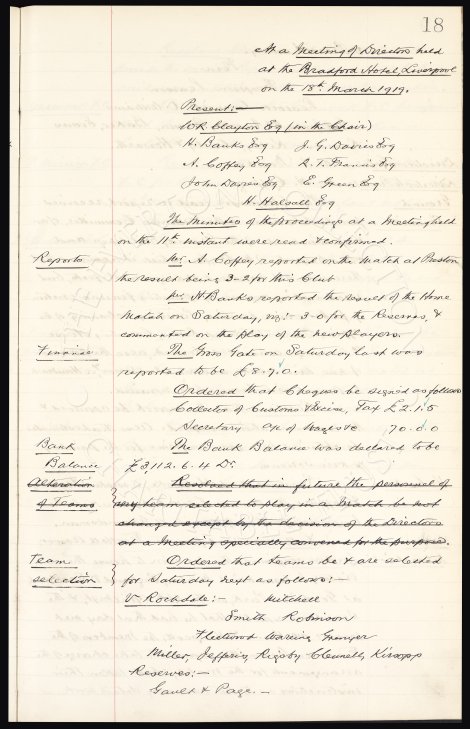 18
At a Meeting of Directors held
at the Bradford Hotel, Liverpool
on the 18th March 1919.
Present:-
W.R. Clayton Esq (in the Chair)
H. Banks Esq J. G. Davies Esq
A. Coffey Esq R. T. Francis Esq
John Davies Esq E. Green Esq
H. Halsall Esq
The Minutes of the proceedings at a Meeting held
on the 11th instant were read & confirmed.
Reports Mr. A. Coffey reported on the Match at Preston
the result being 3-2 for this Club
Mr. H Banks reported the result of the Home
Match on Saturday, viz:- 3-0 for the Reserves, &
commented on the play of the new players.
Finance The Gross Gate on Saturday last was
reported to be £8.7.0.
Ordered that Cheques be signed as follows
Collector of Customs & Excise, Tax £2.1.5
Secretary a/c of Wages &c 70.0.0
Bank The Bank Balance was declared to be
Balance £3,112.6.4 Dr.
Alteration Resolved that in future the personnel of
of Teams any team selected to play in a Match be not
changed except by the decision of the Directors
at a Meeting specially convened for the purpose.
Team Ordered that teams be & are selected
selection for Saturday next as follows:-
V Rochdale:- Mitchell
Smith Robinson
Fleetwood Wareing Grenyer
Miller, Jefferis, Rigsby Clennell, Kirsopp
Reserves:-
Gault & Page.-